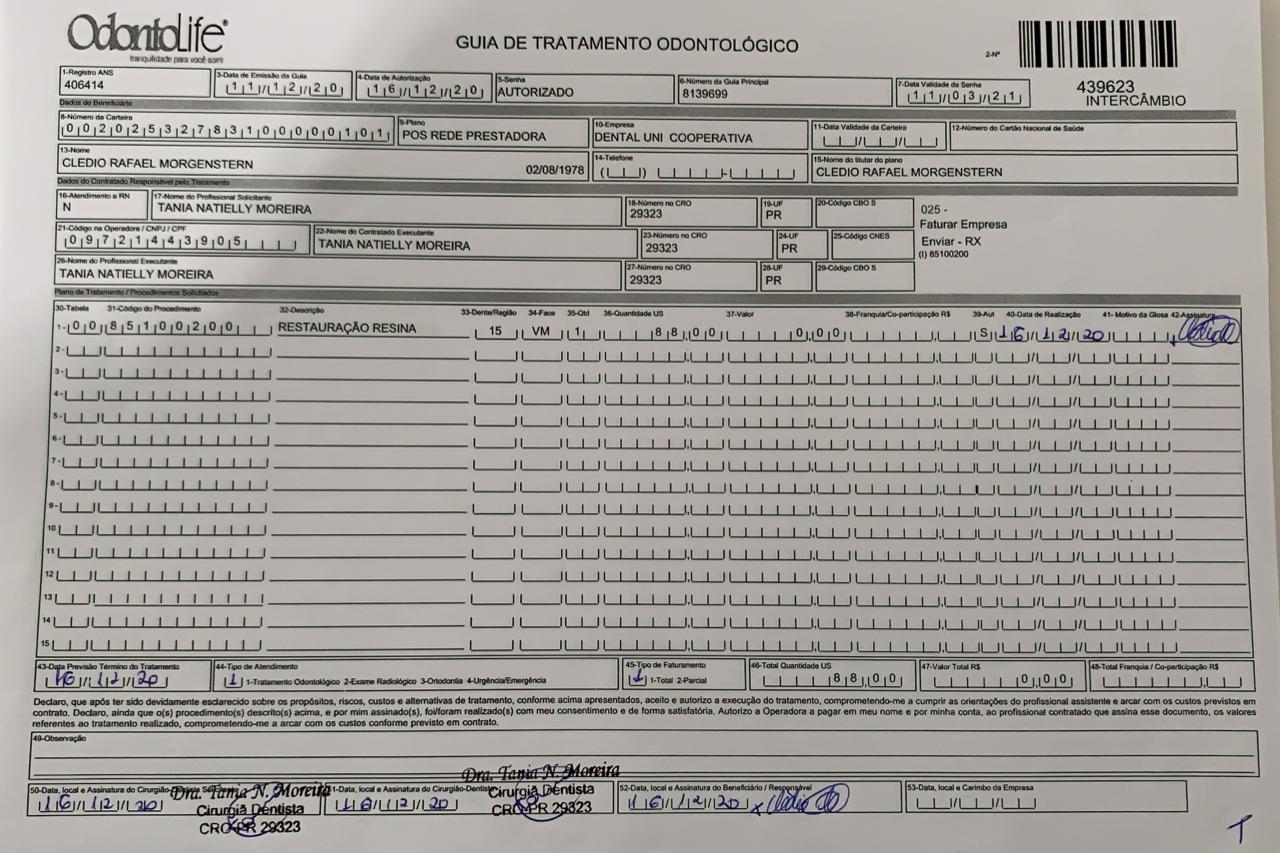 OdontoLife®
tranquilidade para você sorrir
GUIA DE TRATAMENTO ODONTOLÓGICO
2-Nº
439623
INTERCÂMBIO
1-Registro ANS
406414
3-Data de Emissão da Guia
11/12/20
4-Data de Autorização
16/12/20
5-Senha
AUTORIZADO
6-Número da Guia Principal
8139699
7-Data Validade da Senha
11/03/21
Dados do Beneficiário
8-Número da Carteira
00202532783100000101
9-Plano
POS REDE PRESTADORA
10-Empresa
DENTAL UNI COOPERATIVA
11-Data Validade da Carteira
12-Número do Cartão Nacional de Saúde
13-Nome
CLEDIO RAFAEL MORGENSTERN 02/08/1978
14-Telefone
15-Nome do titular do plano
CLEDIO RAFAEL MORGENSTERN
Dados do Contratado Responsável pelo Tratamento
16-Atendimento a RN
N
17-Nome do Profissional Solicitante
TANIA NATIELLY MOREIRA
18-Número no CRO
29323
19-UF
PR
20-Código CBO S
025 -
Faturar Empresa
Enviar - RX
(I) 85100200
21-Código na Operadora / CNPJ / CPF
09721443905
22-Nome do Contratado Executante
TANIA NATIELLY MOREIRA
23-Número no CRO
29323
24-UF
PR
25-Código CNES
26-Nome do Profissional Executante
TANIA NATIELLY MOREIRA
27-Número no CRO
29323
28-UF
PR
29-Código CBO S
Plano de Tratamento / Procedimentos Solicitados
30-Tabela 31-Código do Procedimento 32-Descrição 33-Dente/Região 34-Face 35-Qtd 36-Quantidade US 37-Valor 38-Franquia/Co-participação R$ 39-Aut 40-Data de Realização 41- Motivo da Glosa 42-Assinatura
1- 00 85100200 RESTAURAÇÃO RESINA 15 VM 1 88,00 0,00 S 16/12/20
2-
3-
4-
5-
6-
7-
8-
9-
10
11
12
13
14
15
43-Data Previsão Término do Tratamento
16/12/20
44-Tipo de Atendimento
1 1-Tratamento Odontológico 2-Exame Radiológico 3-Ortodontia 4-Urgência/Emergência
45-Tipo de Faturamento
1 1-Total 2-Parcial
46-Total Quantidade US
88,00
47-Valor Total R$
0,00
48-Total Franquia / Co-participação R$
Declaro, que após ter sido devidamente esclarecido sobre os propósitos, riscos, custos e alternativas de tratamento, conforme acima apresentados, aceito e autorizo a execução do tratamento, comprometendo-me a cumprir as orientações do profissional assistente e arcar com os custos previstos em
contrato. Declaro, ainda que o(s) procedimento(s) descrito(s) acima, e por mim assinado(s), foi/foram realizado(s) com meu consentimento e de forma satisfatória. Autorizo a Operadora a pagar em meu nome e por minha conta, ao profissional contratado que assina esse documento, os valores
referentes ao tratamento realizado, comprometendo-me a arcar com os custos conforme previsto em contrato.
49-Observação
50-Data, local e Assinatura do Cirurgião-Dentista
16/12/20
Dra. Tania N. Moreira
Cirurgiã Dentista
CRO-PR 29323
51-Data, local e Assinatura do Cirurgião-Dentista
16/12/20
Dra. Tania N. Moreira
Cirurgiã Dentista
CRO-PR 29323
52-Data, local e Assinatura do Beneficiário / Responsável
16/12/20 x
53-Data, local e Carimbo da Empresa